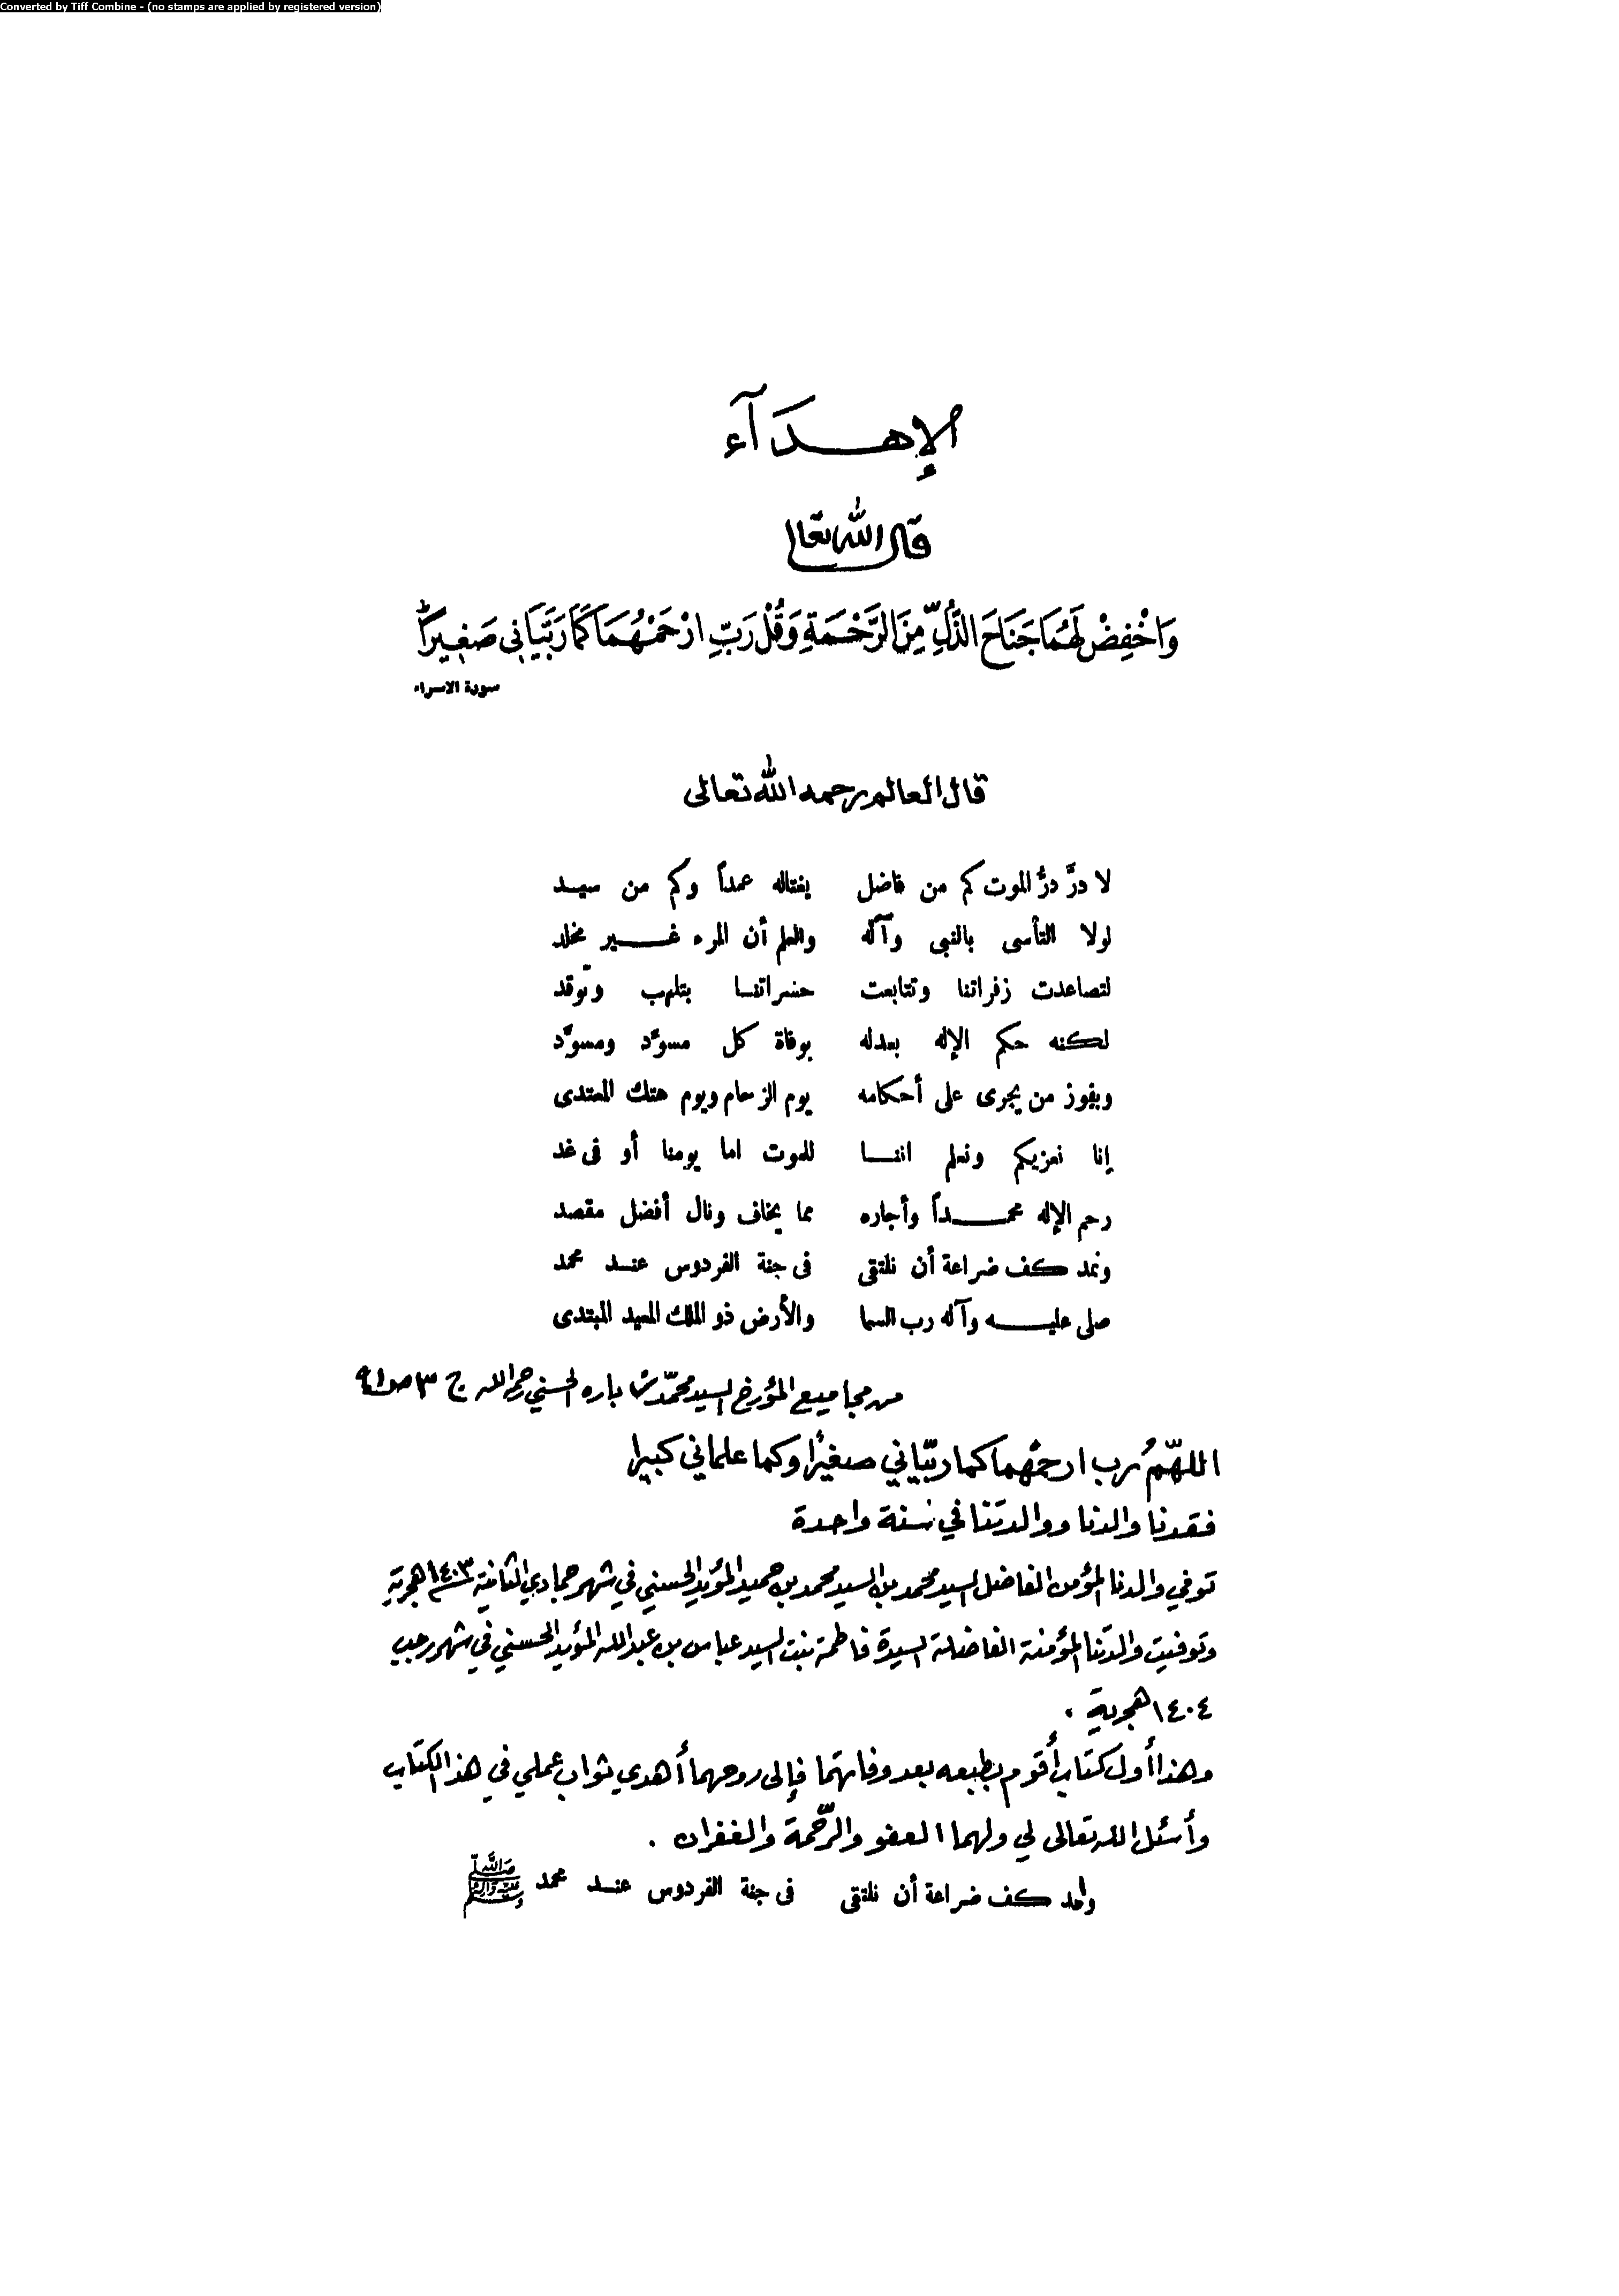 Converted by Tiff Combine - (no stamps are applied by registered version)
الإهدآء
قال الله تعالى
وَاخْفِضْ لَهُمَا جَنَاحَ الذُّلِّ مِنَ الرَّحْمَةِ وَقُلْ رَبِّ ارْحَمْهُمَا كَمَا رَبَّيَانِى صَغِيرًا
سورة الاسراء
قال العالم رحمه الله تعالى
لا درَّ درُّ الموت كم من فاضل يغتاله عمداً وكم من سيد
لولا التأسى بالنبى وآله والعلم أن المرء غير مخلد
لتصاعدت زفراتنا وتتابعت حسراتنا بتلهب وتوقد
لكنه حكم الإله بعدله بوفاة كل مسوَّد ومسوِّد
ويفوز من يجرى على أحكامه يوم الزحام ويوم هتك المعتدى
إنا نعزيكم ونعلم اننا للموت اما يومنا أو فى غد
رحم الإله محمداً وأجاره مما يخاف ونال أفضل مقصد
ونمد كف ضراعة أن نلتقى فى جنة الفردوس عند محمد
صلى عليه وآله رب السما والأرض ذو الملك المعيد المبتدى
من مجاميع المؤرخ السيد محمد زباره الحسني رحمه الله ج ٣
اللهمُّ رب ارحمهما كما ربّياني صغيرًا وكما علماني كبيرا
فقدنا والدنا ووالدتنا في سنة واحدة
توفي والدنا المؤمن الفاضل السيد محمد بن السيد محمد بن حميد المؤيد الحسني في شهر جمادي الثانية ١٤٠٣ هجرية
وتوفيت والدتنا المؤمنة الفاضلة السيدة فاطمة بنت السيد عباس بن عبدالله المؤيد الحسني في شهر رجب
١٤٠٤ هجرية .
وهذا أول كتاب أقوم بطبعه بعد وفاتهما فإلى روحهما أهدي ثواب عملي في هذا الكتاب
وأسئل الله تعالى لي ولهما العفو والرّحمة والغفران .
وأمد كف ضراعة أن نلتقى فى جنة الفردوس عند محمد صلى الله عليه وآله وسلم